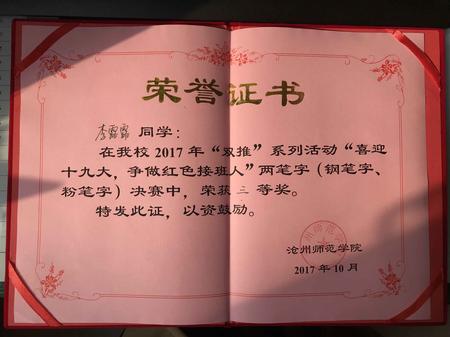 荣誉证书
李露露 同学:
在我校 2017 年“双推”系列活动“喜迎
十九大,争做红色接班人”两笔字(钢笔字、
粉笔字)决赛中,荣获 三 等奖。
特发此证,以资鼓励。
沧州师范学院
2017 年 10 月